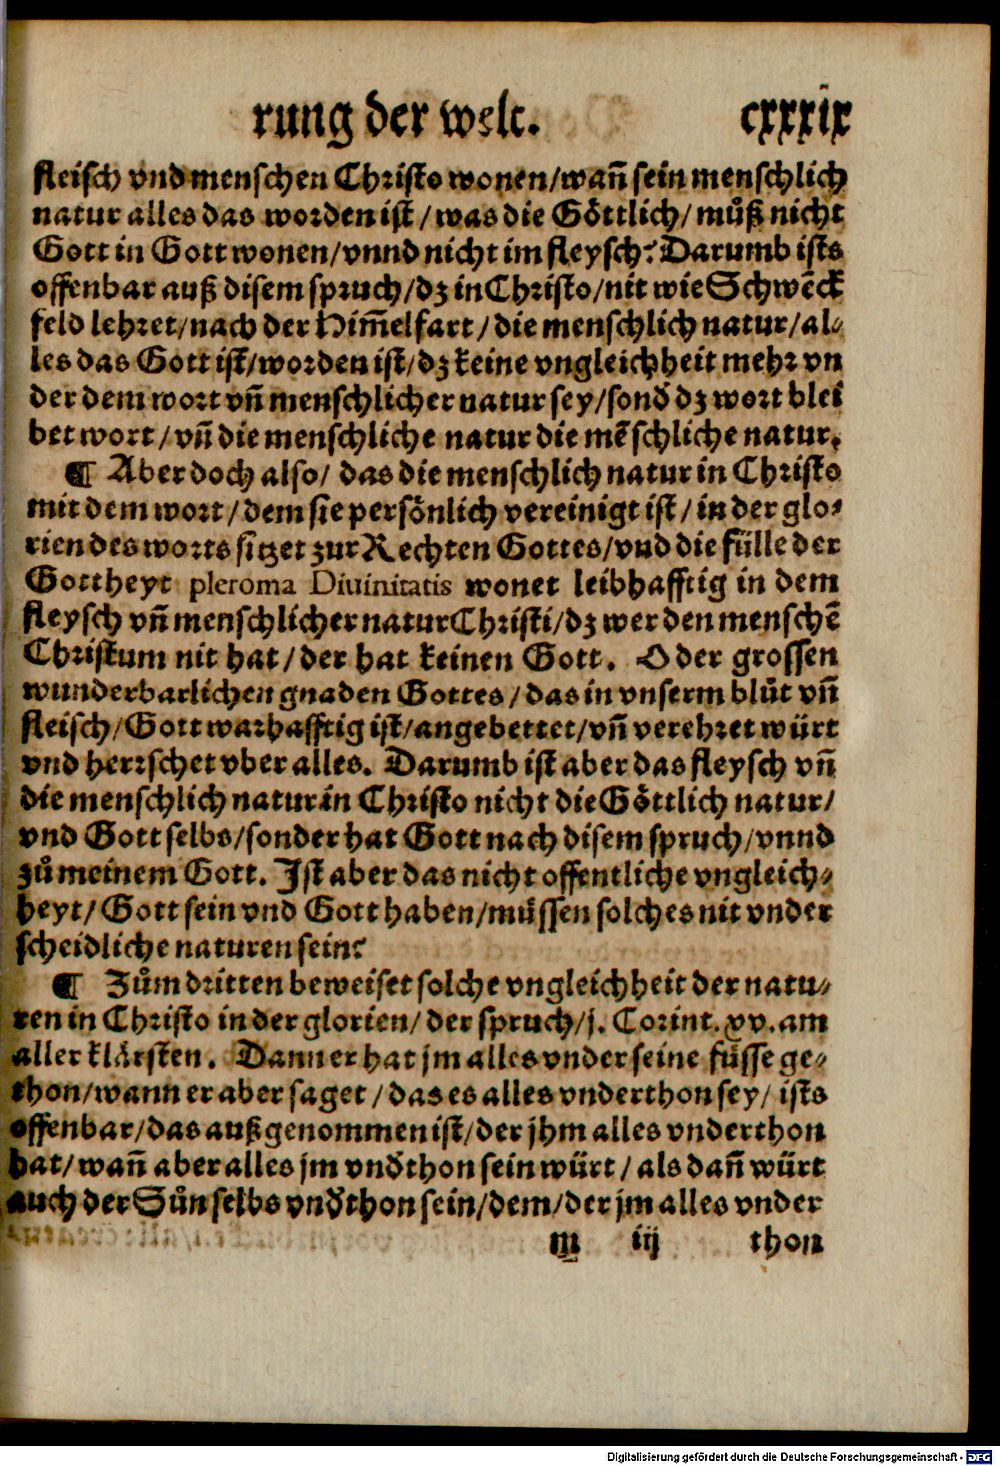 rung der welt. cxxxix
fleisch vnd menschen Christo wonen/wañ sein menschlich
natur alles das worden ist/was die Göttlich/můß nicht
Gott in Gott wonen/vnnd nicht im fleysch? Darumb ists
offenbar auß disem spruch/dz in Christo/nit wie Schwēck
feld lehret/nach der Him̃elfart/die menschlich natur/al⸗
les das Gott ist/worden ist/dz keine vngleichheit mehr vn
der dem wort vñ menschlicher natur sey/sond̕ dz wort blei
bet wort/vñ die menschliche natur die mēschliche natur.
¶ Aber doch also/ das die menschlich natur in Christo
mit dem wort/dem sie persönlich vereinigt ist/in der glo⸗
rien des worts sitzet zur Rechten Gottes/vnd die fülle der
Gottheyt pleroma Diuinitatis wonet leibhafftig in dem
fleysch vñ menschlicher natur Christi/dz wer den menschē
Christum nit hat/der hat keinen Gott. O der grossen
wunderbarlichen gnaden Gottes/das in vnserm blůt vñ
fleisch/Gott warhafftig ist/angebettet/vñ verehret würt
vnd herrschet vber alles. Darumb ist aber das fleysch vñ
die menschlich natur in Christo nicht die Göttlich natur/
vnd Gott selbs/sonder hat Gott nach disem spruch/vnnd
zů meinem Gott. Ist aber das nicht offentliche vngleich⸗
heyt/Gott sein vnd Gott haben/müssen solches nit vnder
scheidliche naturen sein?
¶ Zům dritten beweiset solche vngleichheit der natu⸗
ren in Christo in der glorien/der spruch/j. Corint. xv. am
aller klärsten. Dann er hat jm alles vnder seine füsse ge⸗
thon/wann er aber saget/das es alles vnderthon sey/ ists
offenbar/das außgenommen ist/der jhm alles vnderthon
hat/wañ aber alles jm vnd̕thon sein würt/als dañ würt
auch der Sůn selbs vnd̕thon sein/dem/der jm alles vnder
m iij thon
Digitalisierung gefördert durch die Deutsche Forschungsgemeinschaft - DFG